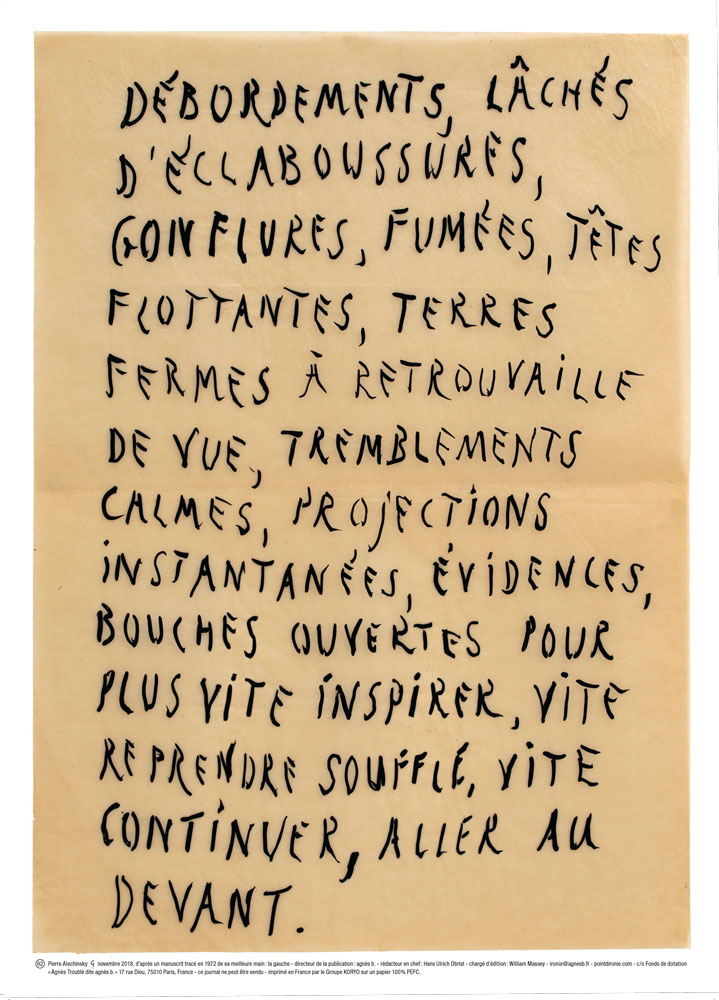 DÉBORDEMENTS, LÂCHÉS
D'ÉCLABOUSSURES,
GONFLURES, FUMÉES, TÊTES
FLOTTANTES, TERRES
FERMES À RETROUVAILLE
DE VUE, TREMBLEMENTS
CALMES, PROJECTIONS
INSTANTANÉES, ÉVIDENCES,
BOUCHES OUVERTES POUR
PLUS VITE INSPIRER, VITE
REPRENDRE SOUFFLE, VITE
CONTINUER, ALLER AU
DEVANT.
62 Pierre Alechinsky novembre 2018, d'après un manuscrit tracé en 1972 de sa meilleure main : la gauche - directeur de la publication : agnès b. - rédacteur en chef : Hans Ulrich Obrist - chargé d'édition : William Massey - ironie@agnesb.fr - pointdironie.com - c/o Fonds de dotation
« Agnès Troublé dite agnès b. » 17 rue Dieu, 75010 Paris, France - ce journal ne peut être vendu - imprimé en France par le Groupe KORYO sur un papier 100% PEFC.